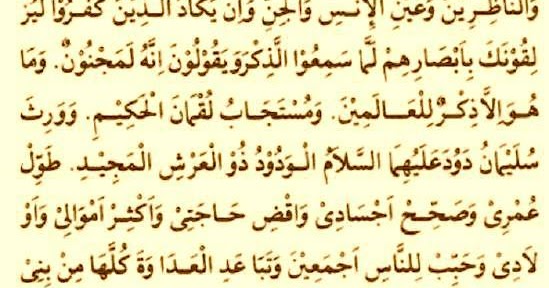 وَالنَّاظِرِيْنَ وَعَيْنِ الْاِنْسِ وَالْجِنِّ وَاِنْ يَكَادُ الَّذِيْنَ كَفَرُوْا لَيُزْ
لِقُوْنَكَ بِاَبْصَارِهِمْ لَمَّا سَمِعُوْا الذِّكْرَ وَيَقُوْلُوْنَ اِنَّهُ لَمَجْنُوْنٌ. وَمَا
هُوَ اِلاَّ ذِكْرٌ لِلْعَالَمِيْنَ. وَمُسْتَجَابُ لُقْمَانَ الْحَكِيْمِ. وَوَرِثَ
سُلَيْمَانُ دَوُدَ عَلَيْهِمَا السَّلَامُ الْوَدُوْدُ ذُو الْعَرْشِ الْمَجِيْدِ. طَوِّلْ
عُمْرِىْ وَصَحِّحْ اَجْسَادِىْ وَاقْضِ حَاجَتِىْ وَاَكْثِرْ اَمْوَالِىْ وَاَوْ
لَادِىْ وَحَبِّبْ لِلنَّاسِ اَجْمَعِيْنَ وَتَبَا عَدِ الْعَدَا وَةَ كُلَّهَا مِنْ بَنِىْ